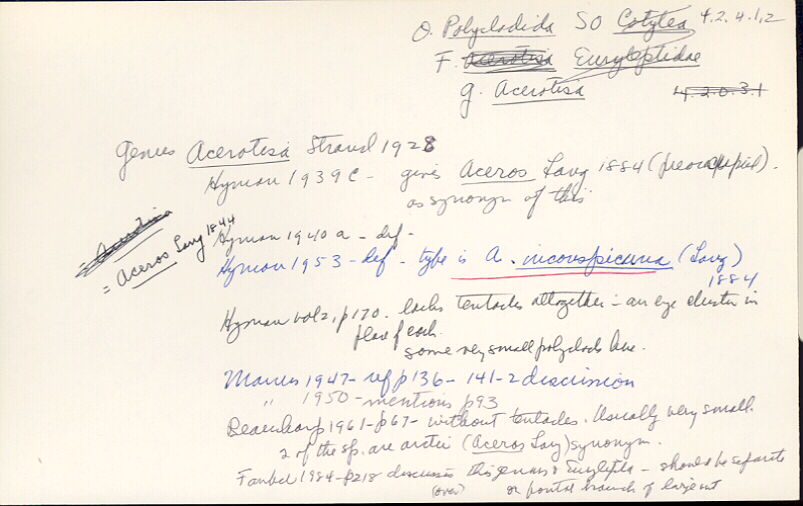 O. Polycladida SO Cotylea 4.2.4.1,2
F. Acerotisa Euryleptidae
g. Acerotisa 4.2.0.3.1
Genus Acerotisa Strand 1928
Hyman 1939c - gives Aceros Lang 1884 (preoccupied).
as synonym of this
Acerotisa
= Aceros Lang 1844
Hyman 1940a - def -
Hyman 1953 - def - type is A. inconspicuna (Lang)
1884
Hyman vol 2, p170. lacks tentacles altogether - an eye cluster in
place of each.
some very small polyclads here.
Marcus 1947 - ref p136 - 141-2 discussion
" 1950 - mentions p93
Beauchamp 1961 - p67 - without tentacles. Usually very small.
2 of the sp. are arctic (Aceros Lang) synonym.
Faubel 1984 - p218 discusses this genus & Eurylepta - should be separate
(over) on frontal branch of large gut